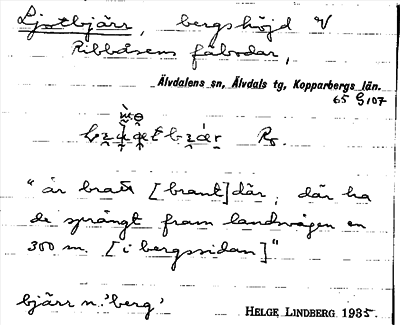 Ljotbjärr, bergshöjd V
Ribbåsens fäbodar,
Älvdalens sn, Älvdals tg, Kopparbergs län.
65 G 107
Ro.
"är bratt [brant] där, där ha
de sprängt fram landsvägen en
300 m. [i bergssidan]"
bjärr n. 'berg'
HELGE LINDBERG 1935